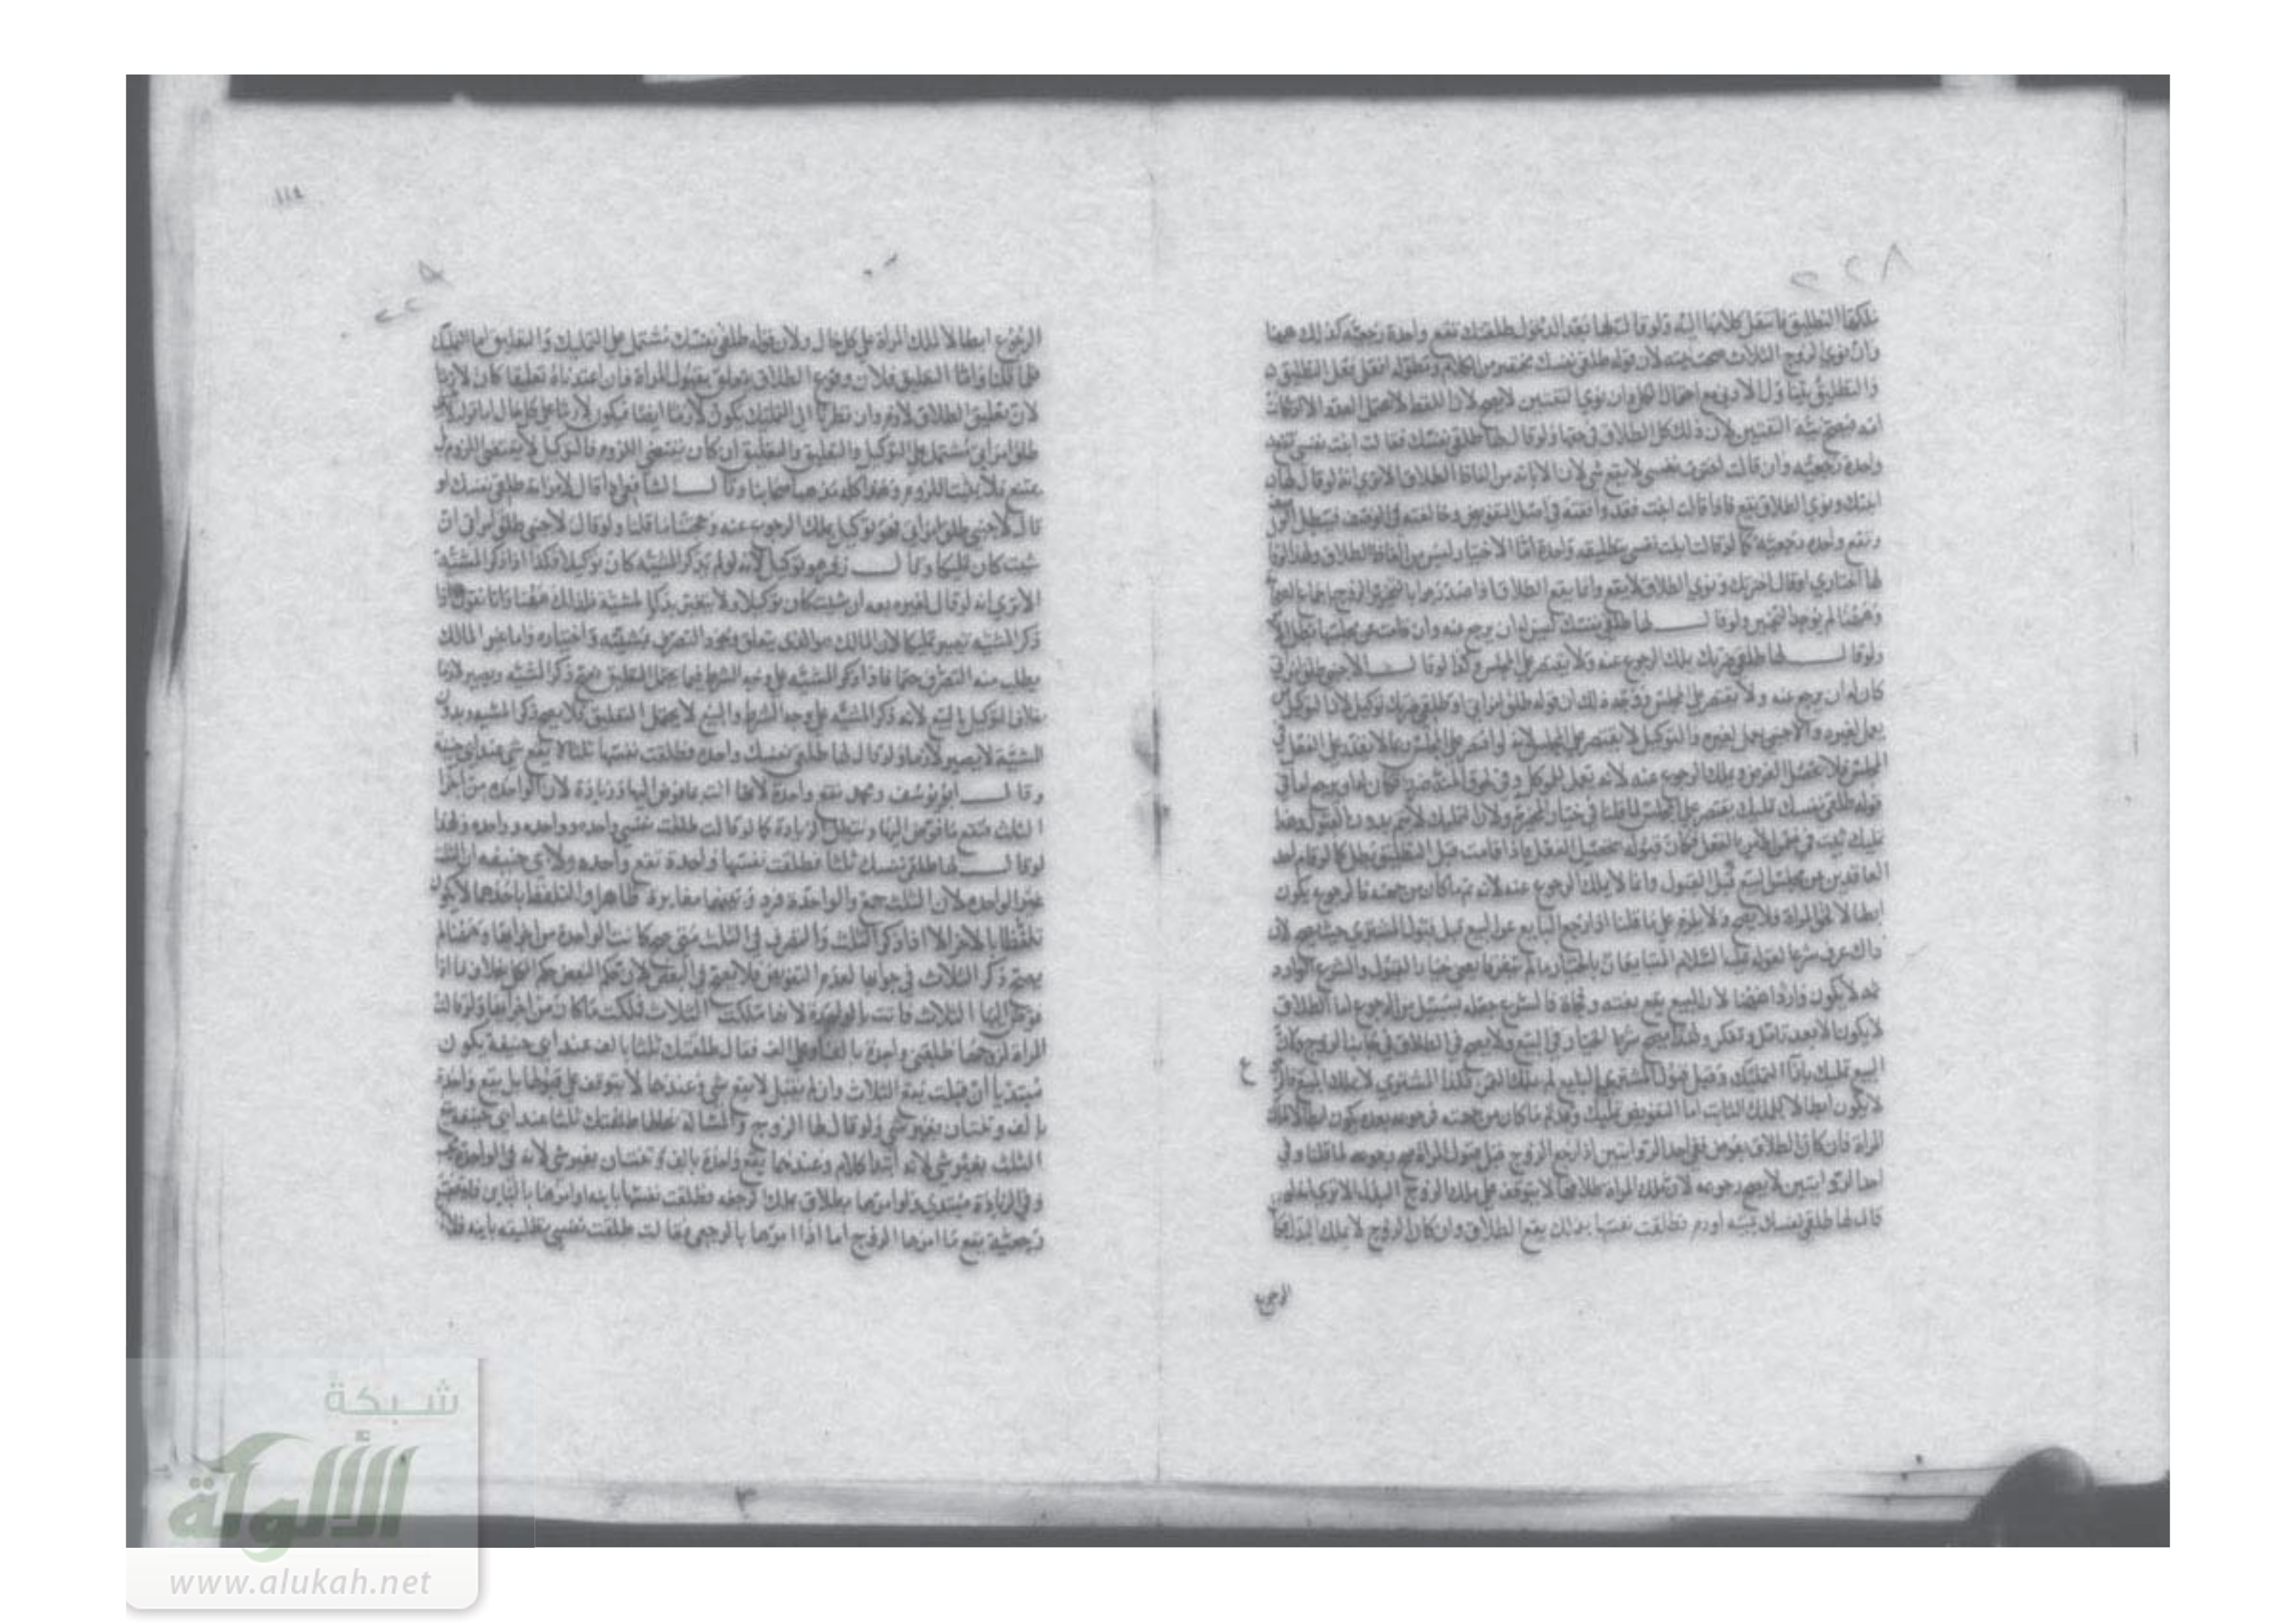 ٢٢٨
ملكها التطليق فاستقل كلامها اليه ولو قال لها بعد الدخول طلقتك تقع واحدة رجعية كذلك ههنا
وان نوى الزوج الثلاث صحت نيته لان قوله طلقي نفسك مختصر من الكلام ومطوله افعلي فعل التطليق
والتطليق يتناول الادنى مع احتمال الكل وان نوى الثنتين لا يصح لان اللفظ لا يحتمل العدد الا اذا كانت
امة فتصح نية الثنتين لان ذلك كل الطلاق في حقها ولو قال لها طلقي نفسك فقالت ابنت نفسي تقع
واحدة رجعية وان قالت اخترت نفسي لا يقع شي لان الابانة من الفاظ الطلاق الا ترى انه لو قال لها
ابنتك ونوى الطلاق يقع فاذا قالت ابنت فقد وافقته في اصل التفويض وخالفته في الوصف فيبطل
وتقع واحده رجعية كما لو قالت ابنت نفسي بتطليقه واحدة اما الاختيار ليس من الفاظ الطلاق ولهذا لو قال
لها اختاري او قال اخترتك ونوى الطلاق لا يقع وانما يقع الطلاق اذا صدر جوابا لتخيير الزوج
وههنا لم يوجد التخيير ولو قال لها طلقي نفسك ليس له ان يرجع عنه وان قامت عن مجلسها بطل
ولو قال لها طلقي ضرتك يملك الرجوع عنه ولا يقتصر على المجلس وكذا لو قال لاجنبي طلق امراتي
كان له ان يرجع عنه ولا يقتصر على المجلس ووجه ذلك ان قوله طلق امراتي او طلقي ضرتك توكيل لان الوكيل
يعمل لغيره والاجنبي يعمل لغيره والتوكيل لا يقتصر على المجلس لانه لو اقتصر على المجلس ربما لا يقدر على الفعل في
المجلس فلا يحصل الغرض ويملك الرجوع عنه لانه يعمل للموكل
قوله طلقي نفسك تمليك يقتصر على المجلس لما قلنا في خيار المخيرة ولان التمليك لا يتم بدون القبول وهذا
تمليك ثبت في ضمن الامر بالفعل فكان قبوله بتحصيل الفعل فاذا قامت قبل التطليق بطل كما لو قام احد
العاقدين من مجلس البيع قبل القبول وانما لا يملك الرجوع عنه لانه تم ما كان من جهته فالرجوع يكون
ابطالا لحق المراة فلا يصح ولا يلزم على ما قلنا اذا رجع البايع عن البيع قبل قبول المشتري حيث يصح لان
ذاك عرف شرعا لقوله عليه السلام المتبايعان بالخيار ما لم يتفرقا يعني خيار القبول والشرع الوارد
ثمه لا يكون واردا ههنا لان المبيع يقع بغته وفجاة فالشرع جعله بسبيل من الرجوع اما الطلاق
لا يكون الا بعد تامل وتفكر ولهذا يصح شرط الخيار في البيع ولا يصح في الطلاق في جانب الزوج وكان
البيع تمليك بازا التمليك وقبل قبول المشتري البايع لم يملك الثمن فكذا المشتري لا يملك المبيع
ع
لا يكون ابطالا للملك الثابت اما التفويض تمليك وقد تم ما كان من جهته فرجوعه بعده يكون ابطالا لملك
المراة فان كان الطلاق بعوض ففي احد الروايتين اذا رجع الزوج قبل قبول المراة صح رجوعه لما قلنا وفي
احد الروايتين لا يصح رجوعه لان تملك المراة طلاقها لا يتوقف على ملك الزوج البدل الا ترى انه لو
قال لها طلقي نفسك بميتة او دم فطلقت نفسها بذلك يقع الطلاق وان كان الزوج لا يملك البدل
الرجوع
١١٤
الرجوع ابطالا لملك المراة على كل حال ولان قوله طلقي نفسك يشتمل على التمليك والتعليق اما التمليك
فلما قلنا واما التعليق فلان وقوع الطلاق يتعلق بقبول المراة فان اعتبرناه تعليقا كان لازما
لان تعليق الطلاق لازم وان نظرنا الى التمليك يكون لازما ايضا فيكون لازما على كل حال اما قوله
طلق امراتي يشتمل على التوكيل والتعليق والتعليق ان كان يقتضي اللزوم فالتوكيل لا يقتضي اللزوم
فلا يثبت اللزوم وهذا كله مذهب اصحابنا وقال الشافعي اذا قال لامراته طلقي نفسك او
قال لاجنبي طلق امراتي فهو توكيل يملك الرجوع عنه وحجتنا ما قلنا ولو قال لاجنبي طلق امراتي ان
شيت كان تمليكا وقال زفر هو توكيل لانه لو لم يذكر المشيه كان توكيلا فكذا اذا ذكر المشيه
الا ترى انه لو قال لغيره بعه ان شيت كان توكيلا ولا يتغير بذكر المشيه فكذلك ههنا وانا نقول اذا
ذكر المشيه تعيير تمليكا لان المالك هو الذي يتعلق وجود التصرف بمشيته واختياره واما غير المالك
يطلب منه التصرف حتما فاذا ذكر المشيه على وجه الشرط فيما يحتمل التعليق صح ذكر المشيه ويصير لازما
بخلاف التوكيل بالبيع لانه ذكر المشيه على وجه الشرط والبيع لا يحتمل التعليق فلا يصح ذكر المشيه وبدون
المشيه لا يصير لازما ولو قال لها طلقي نفسك واحدة فطلقت نفسها ثلثا لا يقع شي عند ابي حنيفه
وقال ابو يوسف ومحمد تقع واحدة لانها اتت بما فوض اليها وزيادة لان الواحدة من اجزا
الثلث فتقع ما فوض اليها وتبطل الزيادة كما لو قالت طلقت نفسي واحده وواحده وواحده ولهذا
لو قال لها طلقي نفسك ثلثا فطلقت نفسها واحدة تقع واحده ولابي حنيفه ان الثلث
غير الواحده لان الثلث جمع والواحدة فرد وبينهما مغايرة ظاهرا والتلفظ باحدهما لا يكون
تلفظا بالاخر الا اذا ذكر الثلث والتصرف في الثلث متى صح كانت الواحدة من اجزايها وههنا لم
يصح ذكر الثلاث في جوابها لعدم التفويض فلا يصح في البعض لان حكم البعض حكم الكل بخلاف ما اذا
فوض اليها الثلاث فاتت بالواحدة لانها تملكت الثلاث فملكت ما كان من اجزايها ولو قالت
المراة لزوجها طلقني واحدة بالف فقال طلقتك ثلثا بالف عند ابي حنيفة يكون
مبتديا ان قبلت يقع الثلاث وان لم يقبل لا يقع شي وعندهما لا يتوقف على قبولها بل يقع واحدة
بالف وثنتان بغير شي ولو قال لها الزوج والمسالة بحالها طلقتك ثلثا عند ابي حنيفة يقع
الثلث بغير شي لانه ابتدا كلام وعندهما يقع واحدة بالف وثنتان بغير شي لانه في الواحدة
وفي الزيادة مبتدي ولو امرها بطلاق يملك الرجعه فطلقت نفسها باينه او امرها بالباين فطلقت
رجعية يقع ما امرها الزوج اما اذا امرها بالرجعي فقالت طلقت نفسي تطليقه باينه فلان
شبكة
الألوكة
www.alukah.net